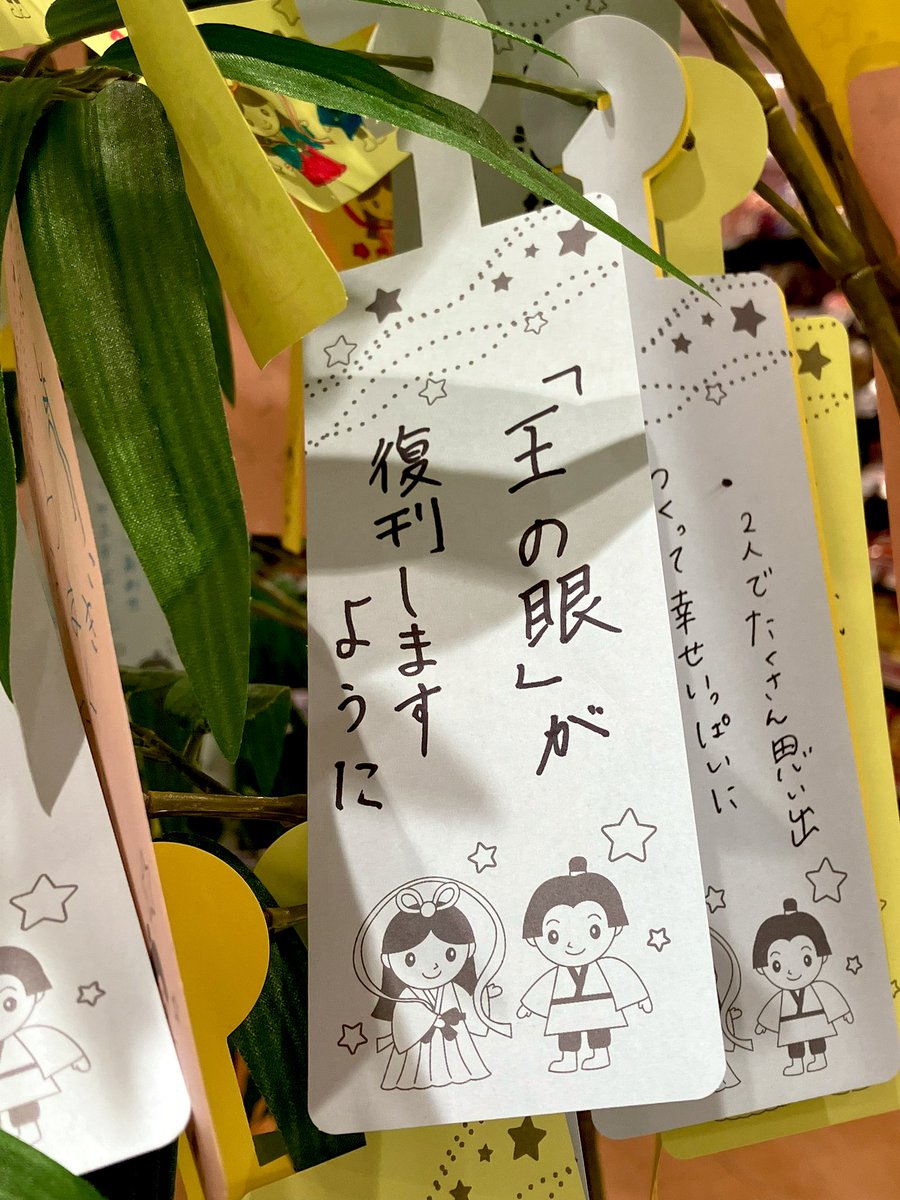 「王の眼」が
復刊します
ように
2人でたくさん思い出
つくって幸せいっぱいに